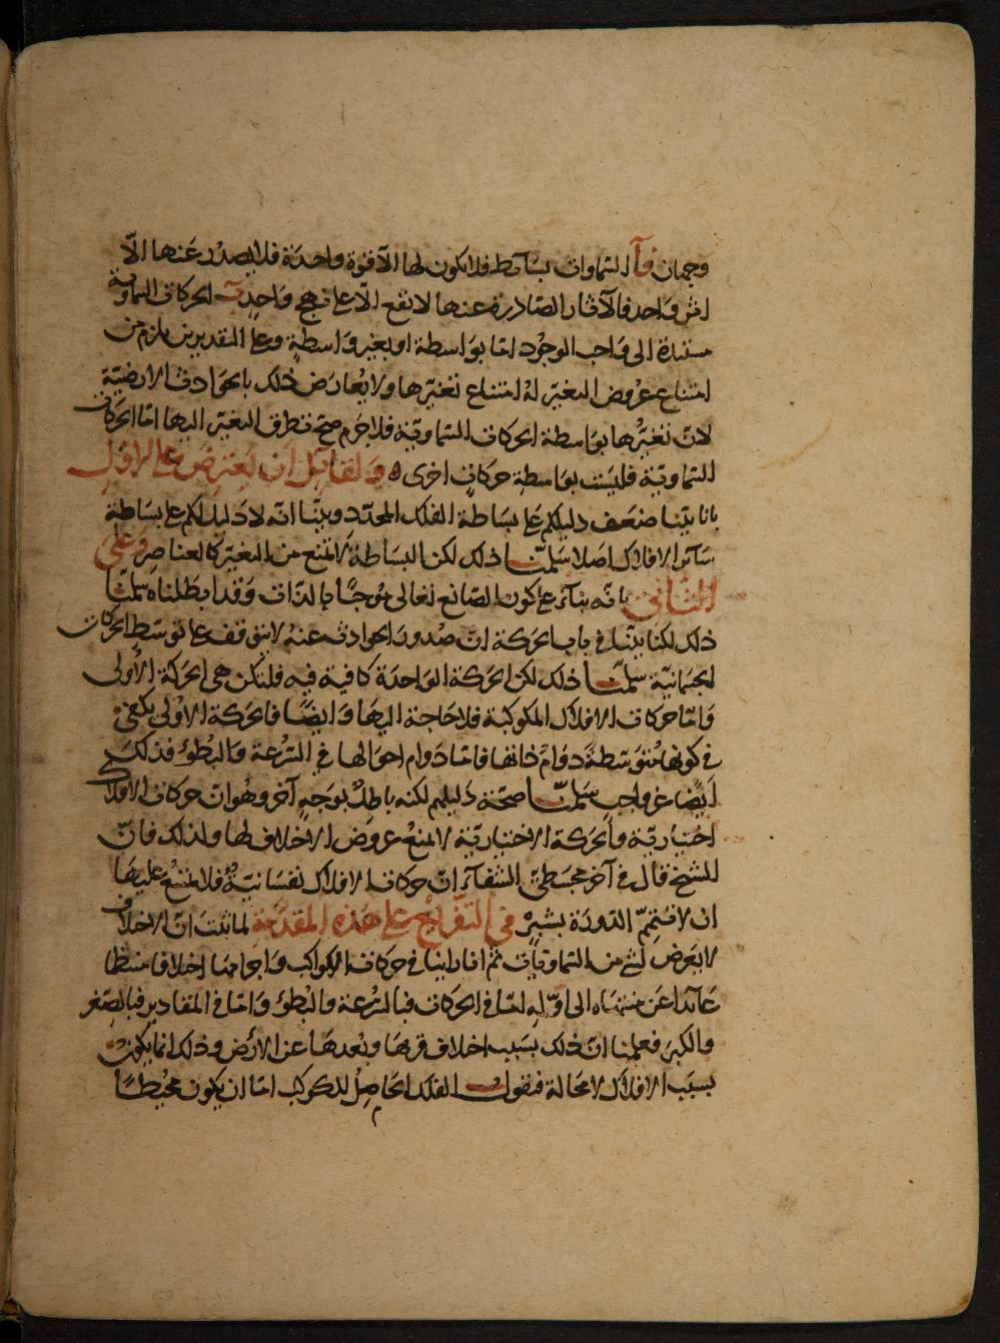 وجهان فآ السماوات بسائط فلا يكون لها الا قوة واحدة فلا يصدر عنها الا
اثر واحد فالآثار الصادرة عنها لا تقع الا على نهج واحد ب الحركات السماوية
مستندة الى واجب الوجود اما بواسطة او بغير واسطة وعلى التقديرين يلزم من
امتناع عروض التغير له امتناع تغيرها ولا يعارض ذلك بالحوادث الارضية
لان تغيرها بواسطة الحركات السماوية فلا جرم صح تطرق التغير اليها اما الحركات
السماوية فليست بواسطة حركات اخرى ه ولقائل ان يعترض على الاول
بانا بينا ضعف دليلكم على بساطة الفلك المحدد وبينا انه لا دليل لكم على بساطة
سائر الافلاك اصلا سلمنا ذلك لكن البساطة لا تمنع من التغير كالعناصر وعلى
الثاني بانه بناء على كون الصانع تعالى موجبا بالذات وقد ابطلناه سلمنا
ذلك لكنا بينا في باب الحركة ان صدور الحوادث عنه لا يتوقف على توسط الحركات
الجسمانية سلمنا ذلك لكن الحركة الواحدة كافية فيه فلتكن هي الحركة الاولى
واما حركات الافلاك المكوكبة فلا حاجة اليها وايضا فالحركة الاولى يكفي
في كونها متوسطة دوام ذاتها فاما دوام احوالها في السرعة والبطؤ فذلك
ايضا غير واجب سلمنا صحة دليلهم لكنه باطل بوجه آخر وهو ان حركات الافلاك
اختيارية والحركة الاختيارية لا تمنع عروض الاختلاف لها ولذلك فان
الشيخ قال في آخر مجسطي الشفآء ان حركات الافلاك نفسانية فلا يمتنع عليها
ان لا تتمم الدورة بشير في التفريع على هذه المقدمة لما ثبت ان الاختلاف
لا يعرض لشئ من السماويات ثم انا راينا في حركات الكواكب واجرامها اختلافا منتظما
عائدا عن منتهاه الى اوله اما في الحركات فبالسرعة والبطؤ واما في المقادير فبالصغر
والكبر فعلمنا ان ذلك بسبب اختلاف قربها وبعدها عن الارض وذلك انما يكون
بسبب الافلاك لا محالة فنقول الفلك الحامل للكوكب اما ان يكون محيطا